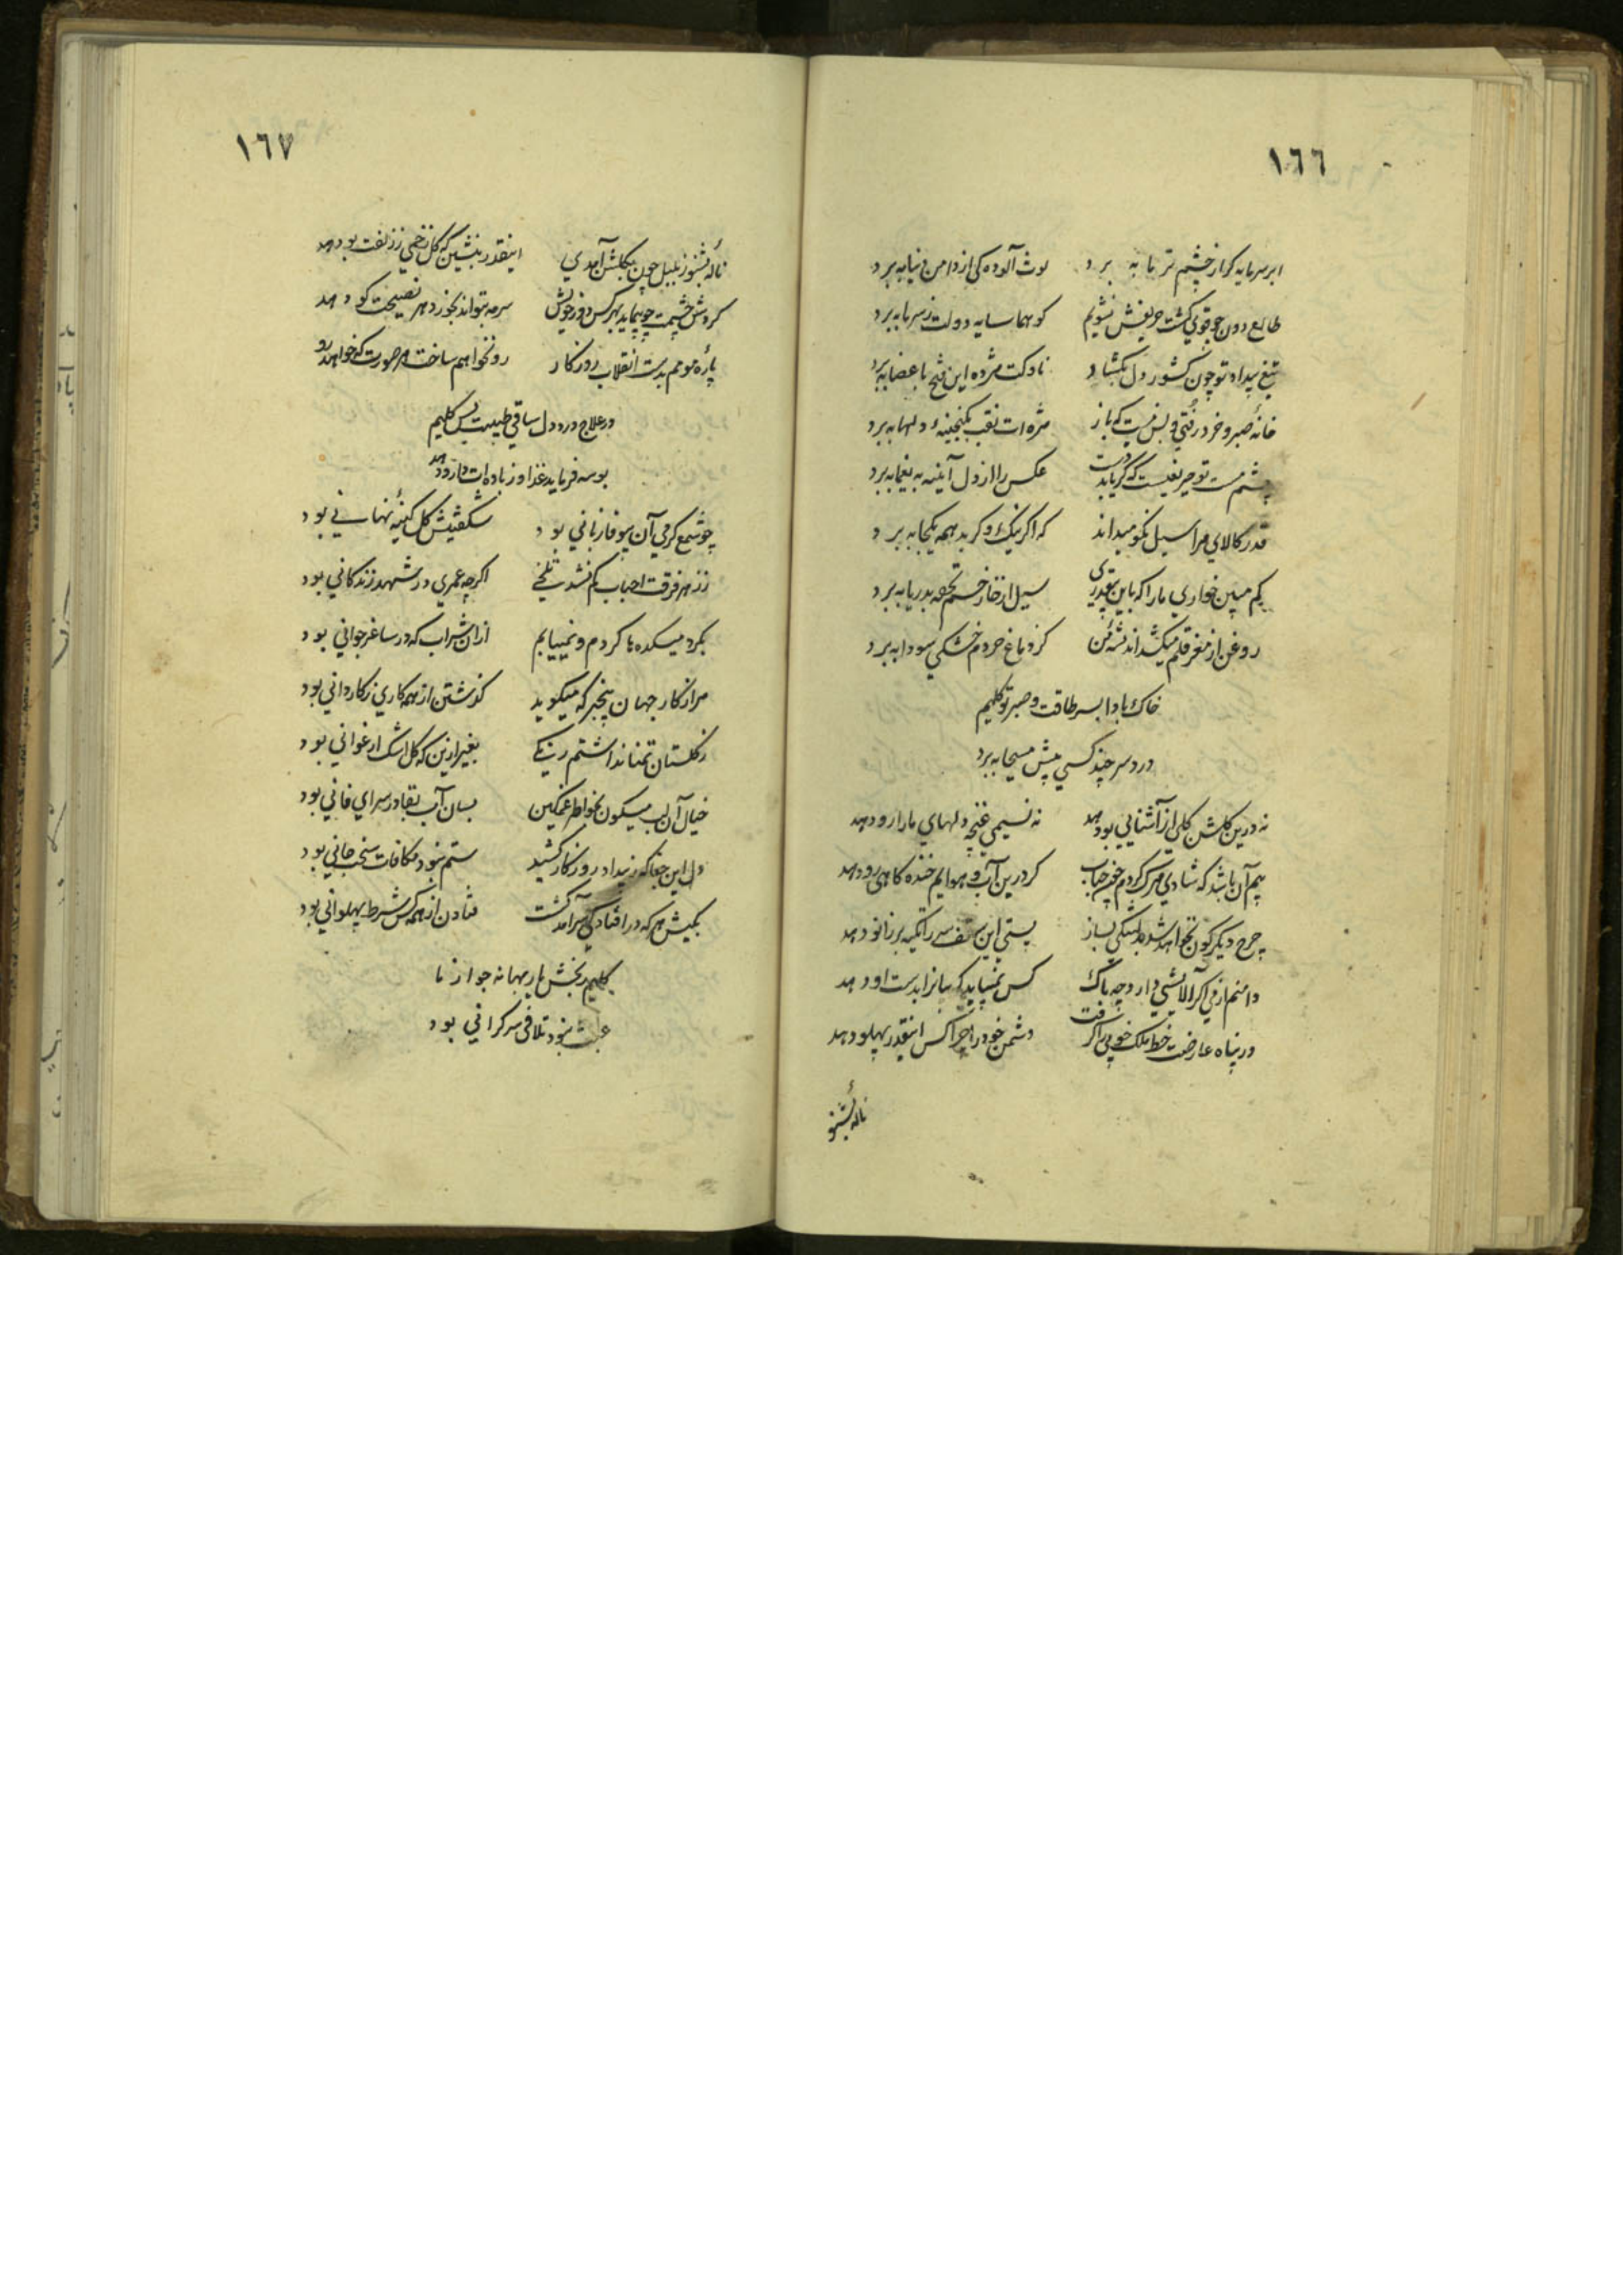 ١٦٦
ابر سرمایه کر از چشم تر ما به برد لوث آلوده کی از دامن دنیا به برد
طالع دون چو قوی گشت حریفش نشویم کو هما سایه دولت ز سر ما به برد
تیغ بیداد تو چون کشور دل بگشاد ناوکت مژده این فتح باعضا به برد
خانه صبر و خرد رفتی و بس نیست که باز مژه ات نقب بگنجینه دلها به برد
چشم مست تو حریفیست که گر یابد دست عکس را از دل آینه به یغما به برد
قدر کالای مرا سیل نکو میداند که اکر نیک و کر بد همه یکجا به برد
کم مبین خواری ما را که باین بیقدری سیل از خار و خسم تحفه بدریا به برد
روغن از مغز قلم میکشد اندیشه من کز دماغ خردم خشکی سودا به برد
خاک بادا بسر طاقت و صبر تو کلیم
درد سر چند کسی پیش مسیحا به برد
نه درین گلشن گلی از آشنایی بو دهد نه نسیمی غنچه دلهای ما را رو دهد
بیم آن باشد که شادی مرگ گردم چون حباب گر درین آب و هوایم خنده گاهی رو دهد
چرخ دیگرگون نخواهد شد بدلتنگی بساز پستی این سقف سر را تکیه بر زانو دهد
دامنم از می اگر آلایشی دارد چه باک کس نمییابد که سازا بدست او دهد
در پناه عارضت خط ملک خوبی را گرفت دشمن خود را چرا کس اینقدر پهلو دهد
نالهٔ بشنو
١٦٧
نالهٔ بشنو ز بلبل چون بگلشن آمدی اینقدر بنشین که گل زخمی ز زلفت بو دهد
گردش چشمت چو پیماید بهر کس دور خویش سرمه بتواند بخورد هر نصیحت گو دهد
پارهٔ مومم بدست انقلاب روزگار رو نخواهم ساخت هر صورت که خواهد رو دهد
در علاج درد دل ساقی طبیبت بس کلیم
بوسه فرماید غذا وز باده ات دارو دهد
چو شمع گرمی آن بیوفا زبانی بود شگفتیش گل کینهٔ نهانی بود
ز زهر فرقت احباب کم نشد تلخی اگرچه عمری در شهد زندگانی بود
بگرد میکده ها گردم و نمییابم از آن شراب که در ساغر جوانی بود
مرا ز کار جهان بیخبر که میگوید گذشتن از همه کاری ز کاردانی بود
ز گلستان تمنا نداشتم رنگی بغیر ازین که گل اشک ارغوانی بود
خیال آن لب میگون بخواطر غمگین بسان آب بقا در سرای فانی بود
دل این جفا که ز بیداد روزگار کشید ستم نبود مکافات سخت جانی بود
بکیش هر که در افتادگی سرآمد گشت فتادن از همه کس شرط پهلوانی بود
کلیم رنجش یار بهانه جو از ما
عبث نبود تلافی سرگرانی بود